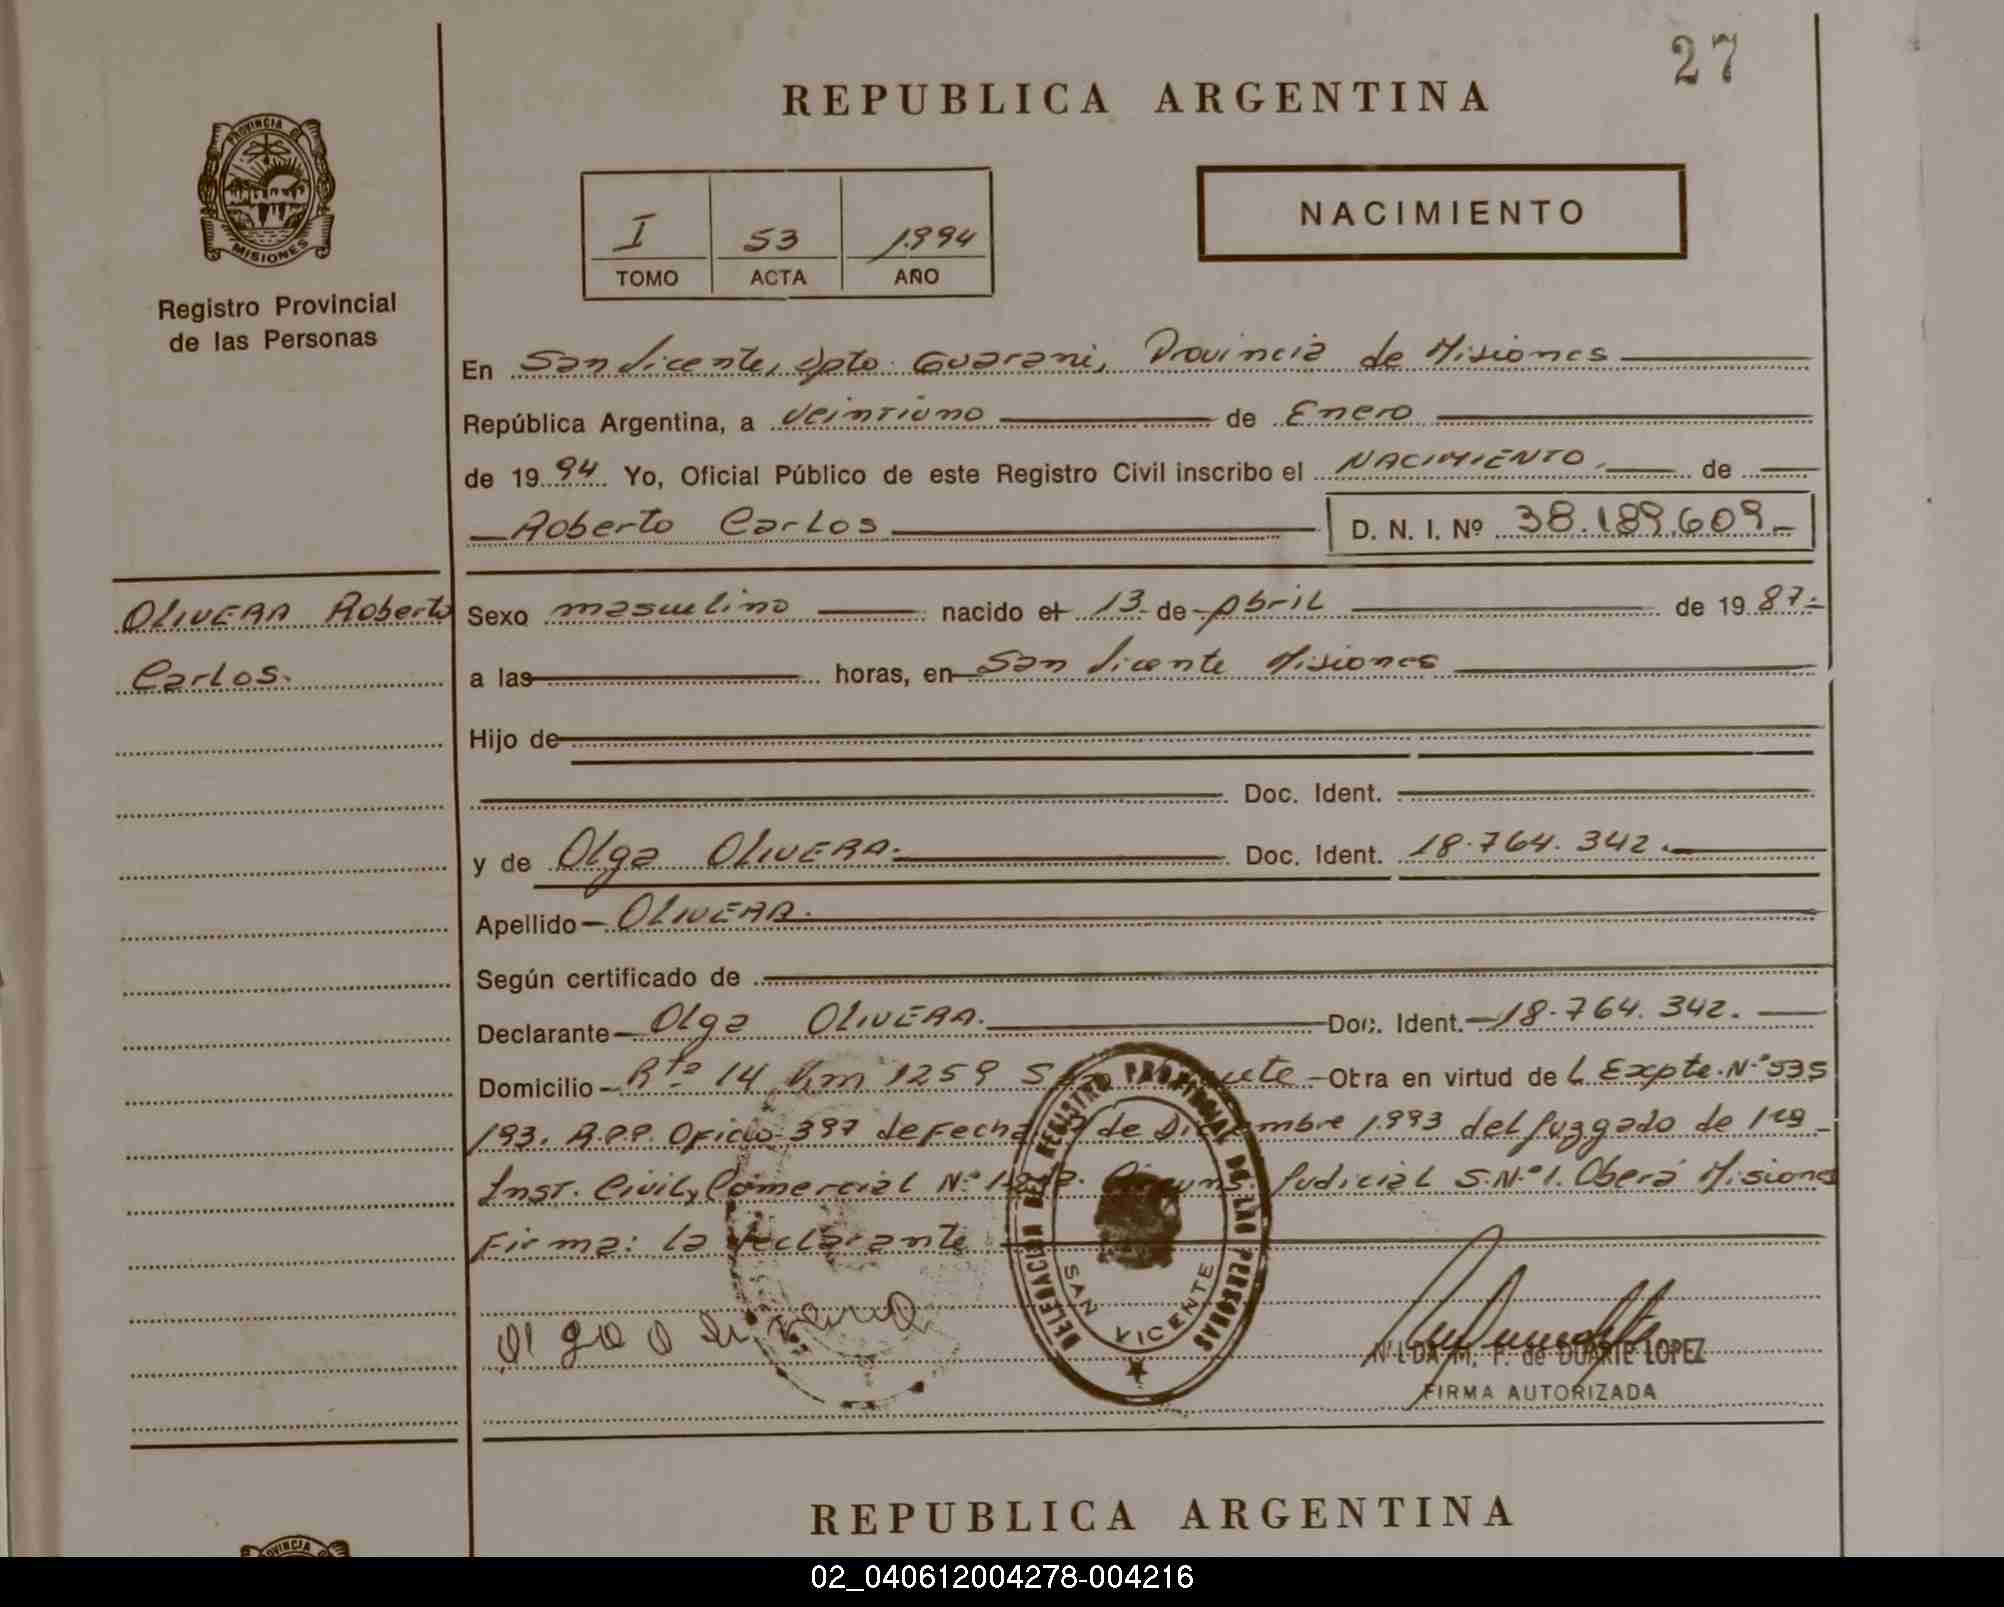 27
REPUBLICA ARGENTINA
PROVINCIA DE
MISIONES
Registro Provincial
de las Personas
I 53 1994
TOMO ACTA AÑO
NACIMIENTO
En San Vicente, dpto. Guarani, Provincia de Misiones
República Argentina, a Veintiuno de Enero
de 1994 Yo, Oficial Público de este Registro Civil inscribo el NACIMIENTO de
Roberto Carlos D. N. I. Nº 38.189.609.-
OLIVERA Roberto
Carlos.
Sexo masculino nacido el 13 de Abril de 1987.-
a las horas, en San Vicente Misiones
Hijo de
Doc. Ident.
y de Olga OLIVERA. Doc. Ident. 18.764.342.
Apellido OLIVERA.
Según certificado de
Declarante Olga OLIVERA. Doc. Ident. 18.764.342.
Domicilio Rta 14 Km 1259 San Otra en virtud de L Expte. Nº 535
193. R.P.P. Oficio 397 de Fecha de Diciembre 1993 del Juzgado de 1ra
Inst. Civil y Comercial Nº Judicial S.Nº 1. Oberá Misiones
Firma: la declarante
DELEGACION DEL REGISTRO PROVINCIAL DE LAS PERSONAS
SAN VICENTE
olga o
NILDA M. F. de DUARTE LOPEZ
FIRMA AUTORIZADA
REPUBLICA ARGENTINA
PROVINCIA
02_040612004278-004216